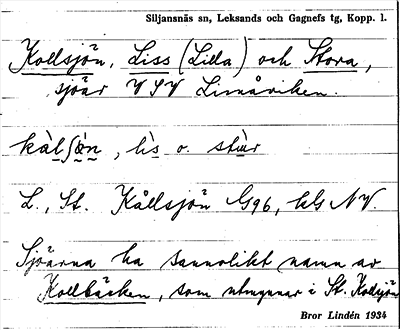 Siljansnäs sn, Leksands och Gagnefs tg, Kopp. l.
Kollsjön, Liss (Lilla) och Stora,
sjöar VSV Limåviken.
kàlʃǟn, lìs o. stùr
L., St. Kållsjön G96, hls NV.
Sjöarna ha sannolikt namn av
Kollbäcken, som utmynnar i St. Kollsjön
Bror Lindén 1934